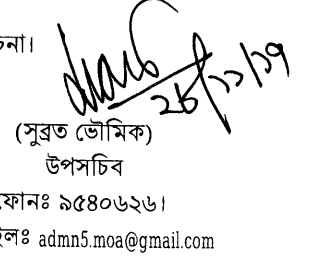 চনা।
২৮/১১/১৭
(সুব্রত ভৌমিক)
উপসচিব
ফোনঃ ৯৫৪০৬২৬।
ইলঃ admn5.moa@gmail.com